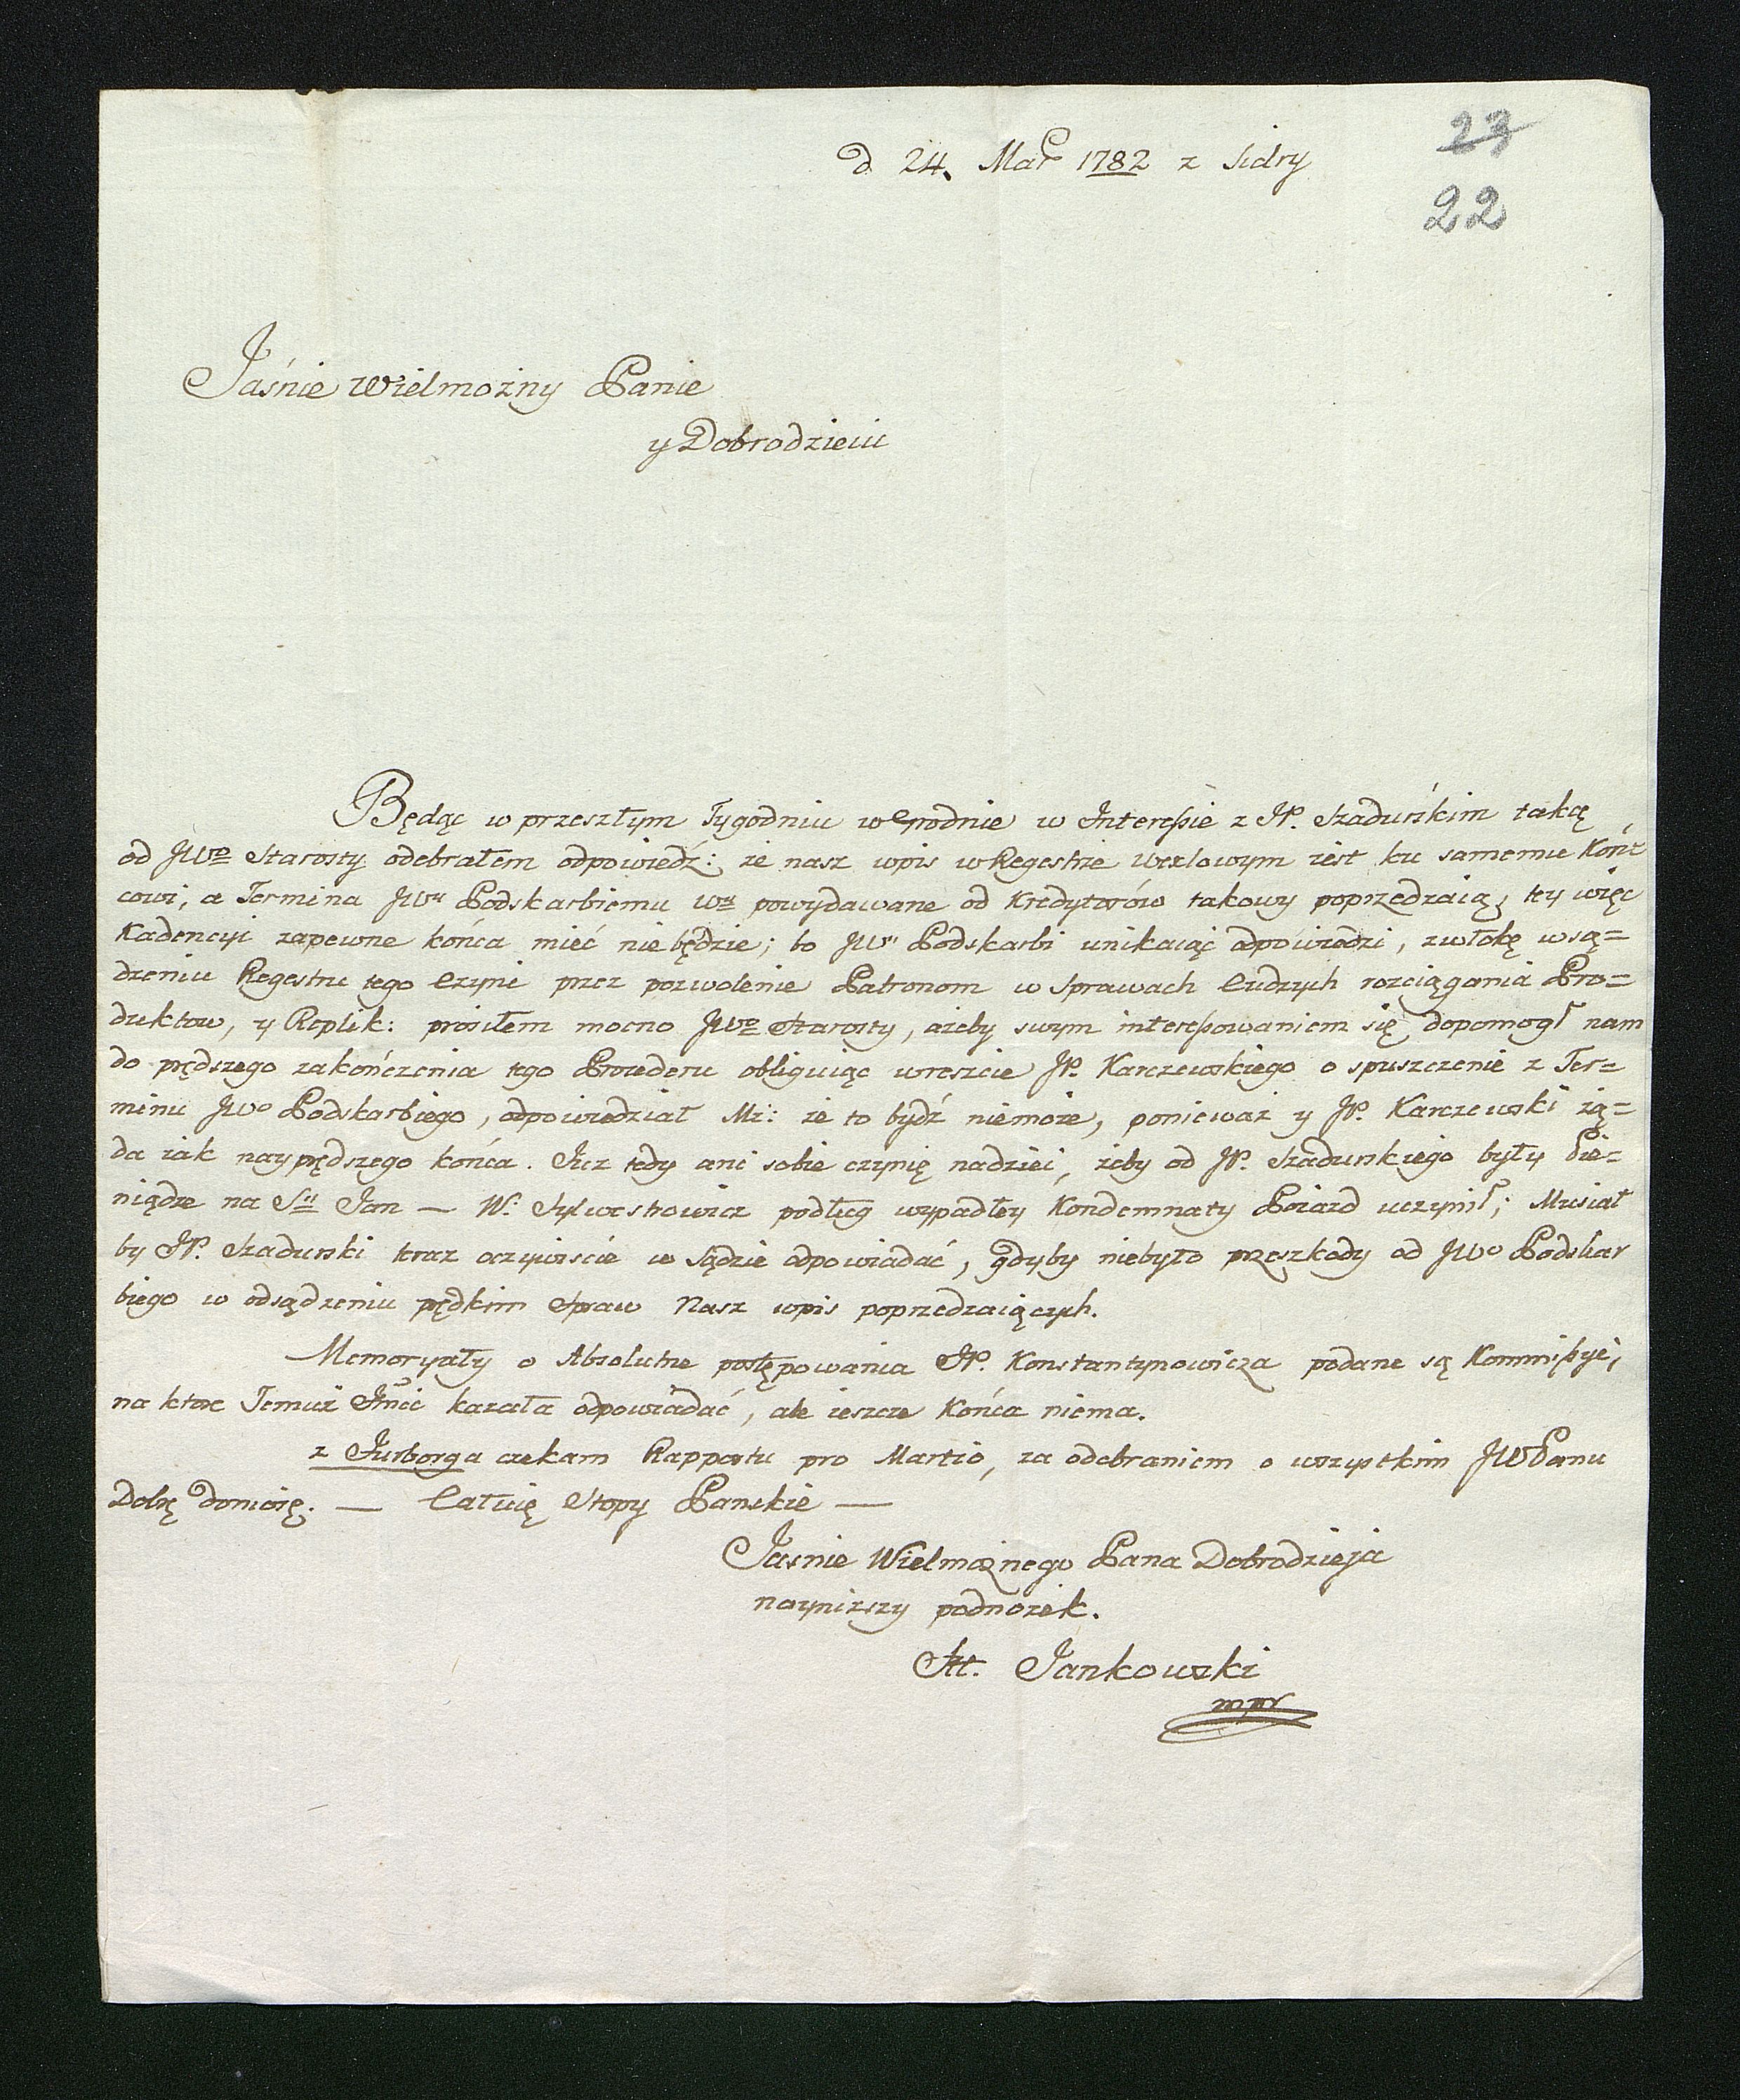 23
d 24. Mar 1782 z Sidry
22
Jaśnie Wielmożny Panie
y Dobrodzieiu
Będąc w przeszłym Tygodniu w Grodnie w Interessie z JP. Szadurskim taką
od JWo Starosty odebrałem odpowiedź: że nasz wpis w Regestrze wexlowym iest ku samemu Koń=
cowi, a Termina JWu Podskarbiemu powydawane od Kredytorów takowy poprzedzaią, tey więc
Kadencyi zapewne końca mieć nie będzie; bo JW Podskarbi unikaiąc odpowiedzi, zwłokę w są=
dzeniu Regestru tego czyni przez pozwolenie Patronom w Sprawach cudzych rozciągania Pro=
duktow, y Replik: prosiłem mocno JWo Starosty, ażeby swym interessowaniem się dopomogł nam
do prędszego zakończenia tego Procederu obliguiąc wreszcie JP. Karczewskiego o spuszczenie z Ter=
minu JWo Podskarbiego, odpowiedział Mi: że to bydź niemoże, ponieważ y JP. Karczewski żą=
da iak nayprędszego końca. Juz tedy ani sobie czynię nadziei, żeby od JP. Szadurskiego były Pie=
niądze na Sty Jan — W: Sylwestrowicz podług wypadłey Kondemnaty Poiazd uczynił; Musiał
by JP. Szadurski teraz oczywiscie w Sądzie odpowiadać, gdyby niebyło przeszkody od JWo Podskar
biego w odsądzeniu prędkim Spraw Nasz wpis poprzedzaiących.
Memoryały o Absolutne postępowania JP. Konstantynowicza podane są Kommissyi,
na ktore Temuż Jmci kazała odpowiadać, ale ieszcze Końca niema.
z Jurborga czekam Rapportu pro Martio, za odebraniem o wszystkim JWPanu
Dobę doniosę. — Całuię Stopy Panskie —
Jasnie Wielmożnego Pana Dobrodzieja
nayniższy podnożek.
St. Jankowski
mpr